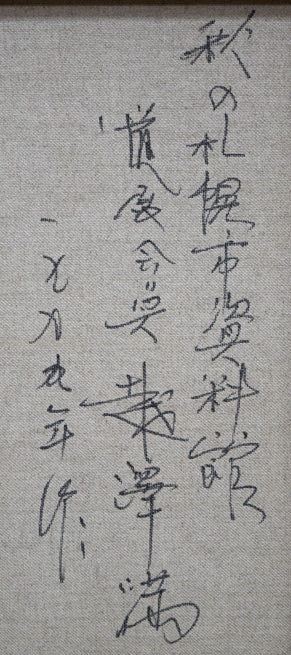 秋の札幌市資料館
道展会員 越澤満
一九九九年作